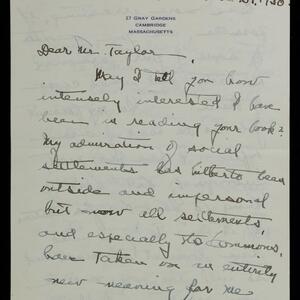 1930
27 GRAY GARDENS
CAMBRIDGE
MASSACHUSETTS
Dear Mr. Taylor,
May I tell you how
intensely interested I have
been in reading your book?
My admiration of social
settlements has hitherto been
outside and impersonal
but now all settlements,
and especially the Commons,
have taken on an entirely
new meaning for me